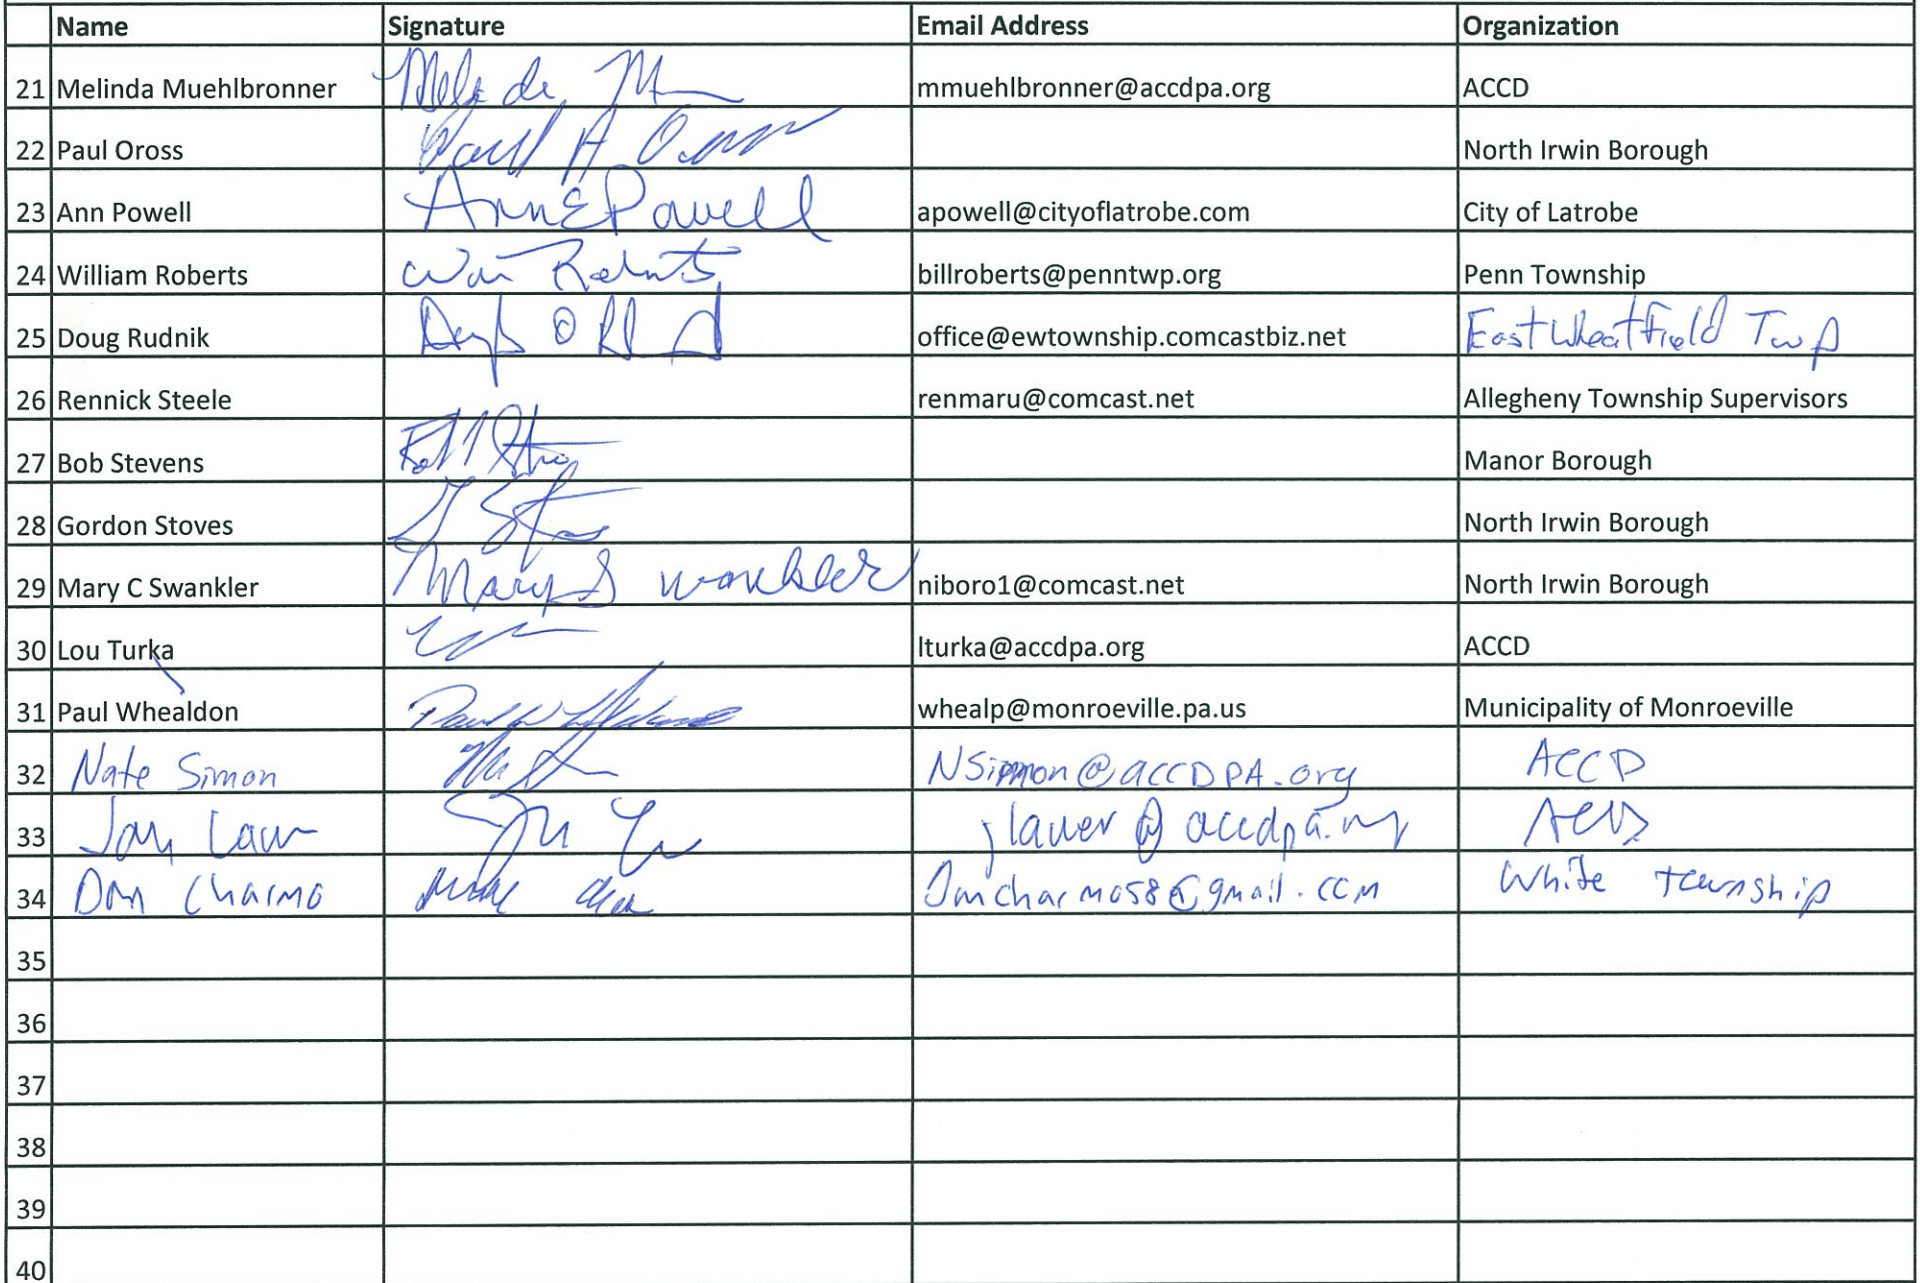 Name Signature Email Address Organization
21 Melinda Muehlbronner mmuehlbronner@accdpa.org ACCD
22 Paul Oross Paul A Oross North Irwin Borough
23 Ann Powell Ann E Powell apowell@cityoflatrobe.com City of Latrobe
24 William Roberts Wm Roberts billroberts@penntwp.org Penn Township
25 Doug Rudnik office@ewtownship.comcastbiz.net East Wheatfield Twp
26 Rennick Steele renmaru@comcast.net Allegheny Township Supervisors
27 Bob Stevens Manor Borough
28 Gordon Stoves North Irwin Borough
29 Mary C Swankler Mary Swankler niboro1@comcast.net North Irwin Borough
30 Lou Turka lturka@accdpa.org ACCD
31 Paul Whealdon whealp@monroeville.pa.us Municipality of Monroeville
32 Nate Simon NSimmon@ACCDPA.org ACCD
33 jlauer@accdpa.org ACCD
34 Dom Charmo Domcharmo58@gmail.com White township
35
36
37
38
39
40